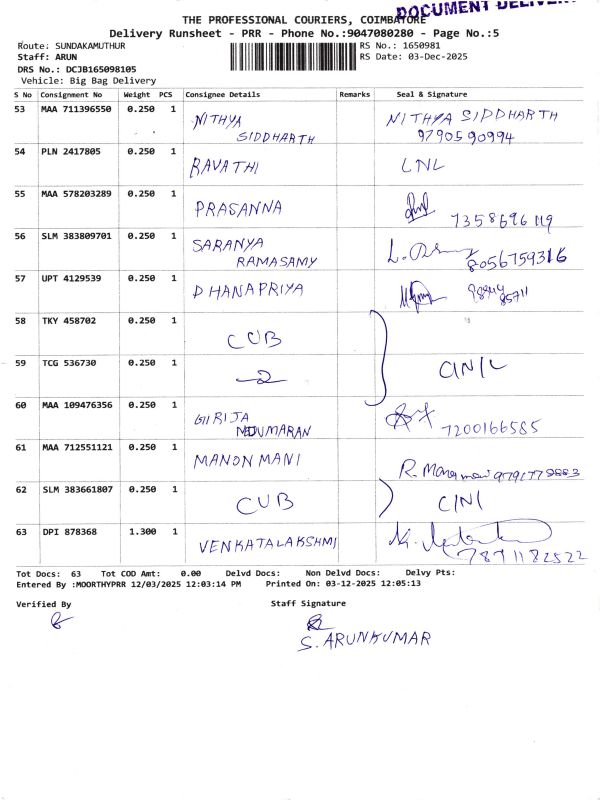 DOCUMENT DELIVER
THE PROFESSIONAL COURIERS, COIMBATORE
Delivery Runsheet - PRR - Phone No.:9047080280 - Page No.:5
Route: SUNDAKAMUTHUR RS No.: 1650981
Staff: ARUN RS Date: 03-Dec-2025
DRS No.: DCJB165098105
Vehicle: Big Bag Delivery
S No Consignment No Weight PCS Consignee Details Remarks Seal & Signature
53 MAA 711396550 0.250 1 NITHYA NITHYA SIDDHARTH
SIDDHARTH 9790590994
54 PLN 2417805 0.250 1 RAVATHI LNL
55 MAA 578203289 0.250 1 PRASANNA 7358696119
56 SLM 383809701 0.250 1 SARANYA
RAMASAMY 8056759316
57 UPT 4129539 0.250 1 DHANAPRIYA
58 TKY 458702 0.250 1 CUB
59 TCG 536730 0.250 1 2 C/N/L
60 MAA 109476356 0.250 1 GIRIJA
7200166585
61 MAA 712551121 0.250 1 MANONMANI
62 SLM 383661807 0.250 1 CUB C/N/
63 DPI 878368 1.300 1 VENKATALAKSHMI
7891182522
Tot Docs: 63 Tot COD Amt: 0.00 Delvd Docs: Non Delvd Docs: Delvy Pts:
Entered By :MOORTHYPRR 12/03/2025 12:03:14 PM Printed On: 03-12-2025 12:05:13
Verified By Staff Signature
S. ARUNKUMAR